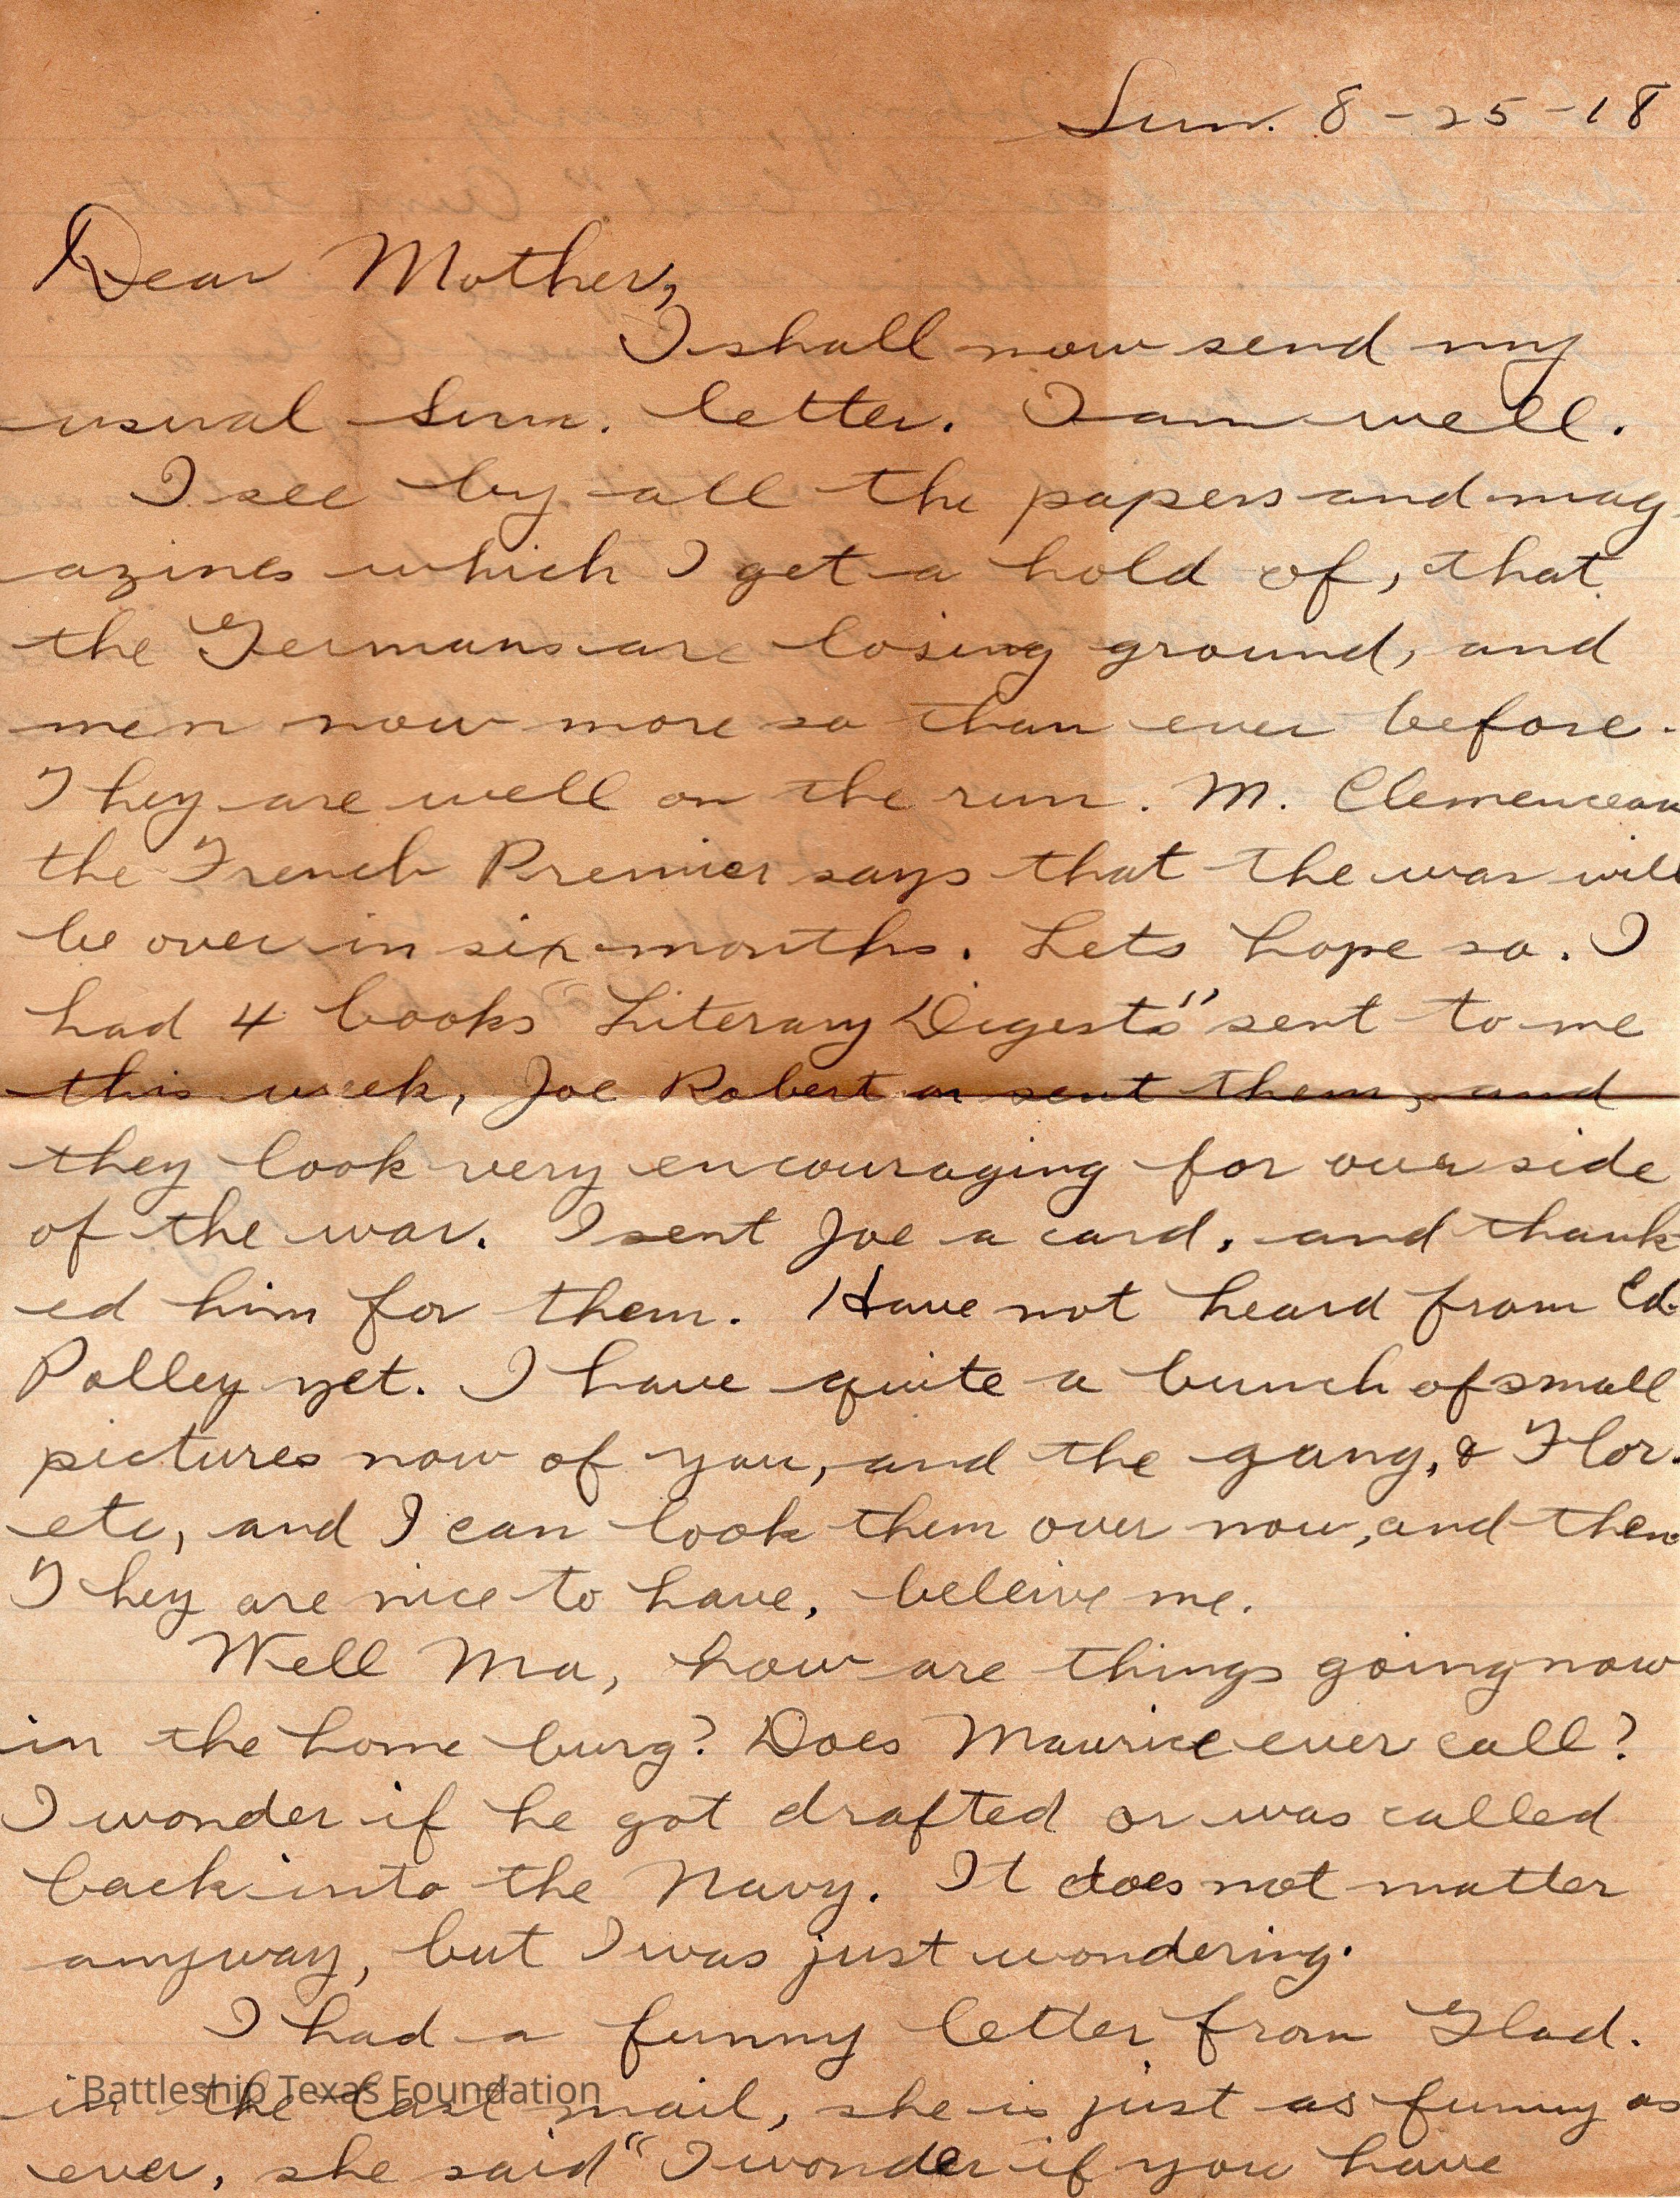 Sun. 8-25-18
Dear Mother,
I shall now send my
usual Sun. letter. I am well.
I see by all the papers and mag-
azines which I get a hold of, that
the Germans are losing ground, and
men now more so than ever before.
They are well on the run. M. Clemenceau
the French Premier says that the war will
be over in six months. Lets hope so. I
had 4 books "Literary Digests" sent to me
this week, Joe Robert sent them, and
they look very encouraging for our side
of the war. I sent Joe a card, and thank
ed him for them. Have not heard from Ed.
Polley yet. I have quite a bunch of small
pictures now of you, and the gang, & Flor.
etc, and I can look them over now, and then
They are nice to have, beleive me.
Well Ma, how are things going now
in the home burg? Does Maurice ever call?
I wonder if he got drafted or was called
back into the Navy. It does not matter
anyway, but I was just wondering.
I had a funny letter from Glad.
in the last mail, she is just as funny as
ever, she said "I wonder if you have
Battleship Texas Foundation